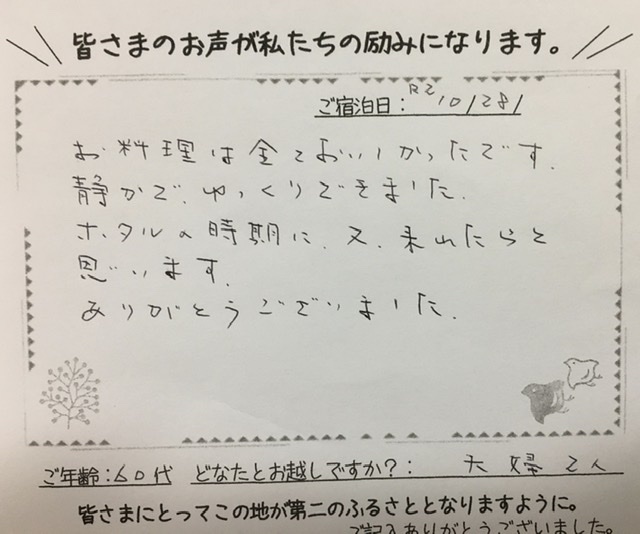 皆さまのお声が私たちの励みになります。
ご宿泊日: R2 10/28/
お料理は全ておいしかったです.
静かで.ゆっくりできました.
ホタルの時期に.又.来れたらと
思います.
ありがとうございました.
ご年齢:60代 どなたとお越しですか?: 夫婦2人
皆さまにとってこの地が第二のふるさととなりますように。
ご記入ありがとうございました。